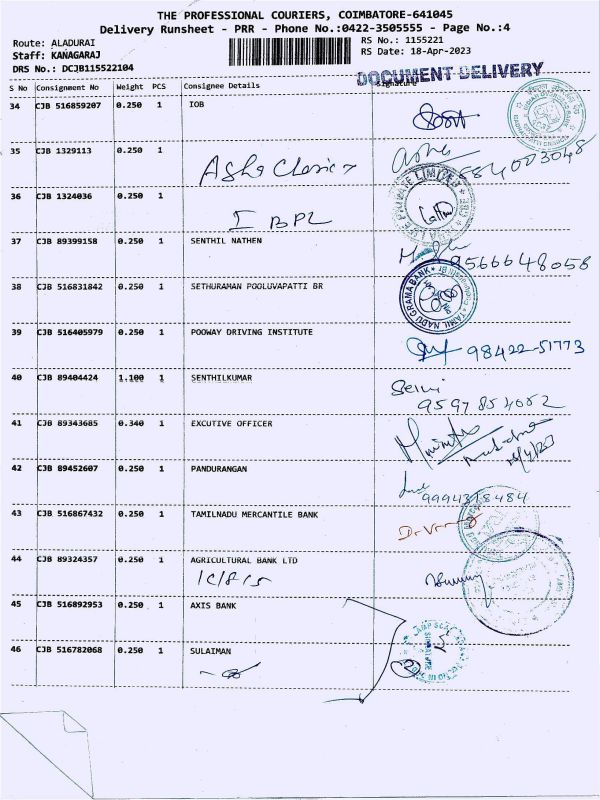 THE PROFESSIONAL COURIERS, COIMBATORE-641045
Delivery Runsheet - PRR - Phone No.:0422-3505555 - Page No.:4
Route: ALADURAI
RS No.: 1155221
Staff: KANAGARAJ
RS Date: 18-Apr-2023
DRS No.: DCJB115522104
DOCUMENT DELIVERY
S No Consignment No Weight PCS Consignee Details Signature
34 CJB 516859207 0.250 1 IOB
35 CJB 1329113 0.250 1
36 CJB 1324036 0.250 1
37 CJB 89399158 0.250 1 SENTHIL NATHEN
9566648058
38 CJB 516831842 0.250 1 SETHURAMAN POOLUVAPATTI BR
TAMIL NADU GRAMA BANK
39 CJB 516405979 0.250 1 POOWAY DRIVING INSTITUTE
98422-51773
40 CJB 89404424 1.100 1 SENTHILKUMAR
9597854052
41 CJB 89343685 0.340 1 EXCUTIVE OFFICER
42 CJB 89452607 0.250 1 PANDURANGAN
9994318484
43 CJB 516867432 0.250 1 TAMILNADU MERCANTILE BANK
44 CJB 89324357 0.250 1 AGRICULTURAL BANK LTD
45 CJB 516892953 0.250 1 AXIS BANK
46 CJB 516782068 0.250 1 SULAIMAN